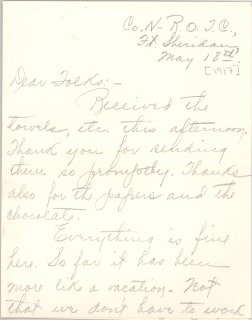 Co. N - R.O.T.C.,
Ft. Sheridan,
May 18th
[1917]
Dear Folks:-
Received the
towels, etc. this afternoon.
Thank you for sending
them so promptly. Thanks
also for the papers and the
chocolate.
Everything is fine
here. So far it has been
more like a vacation - Not
that we don't have to work